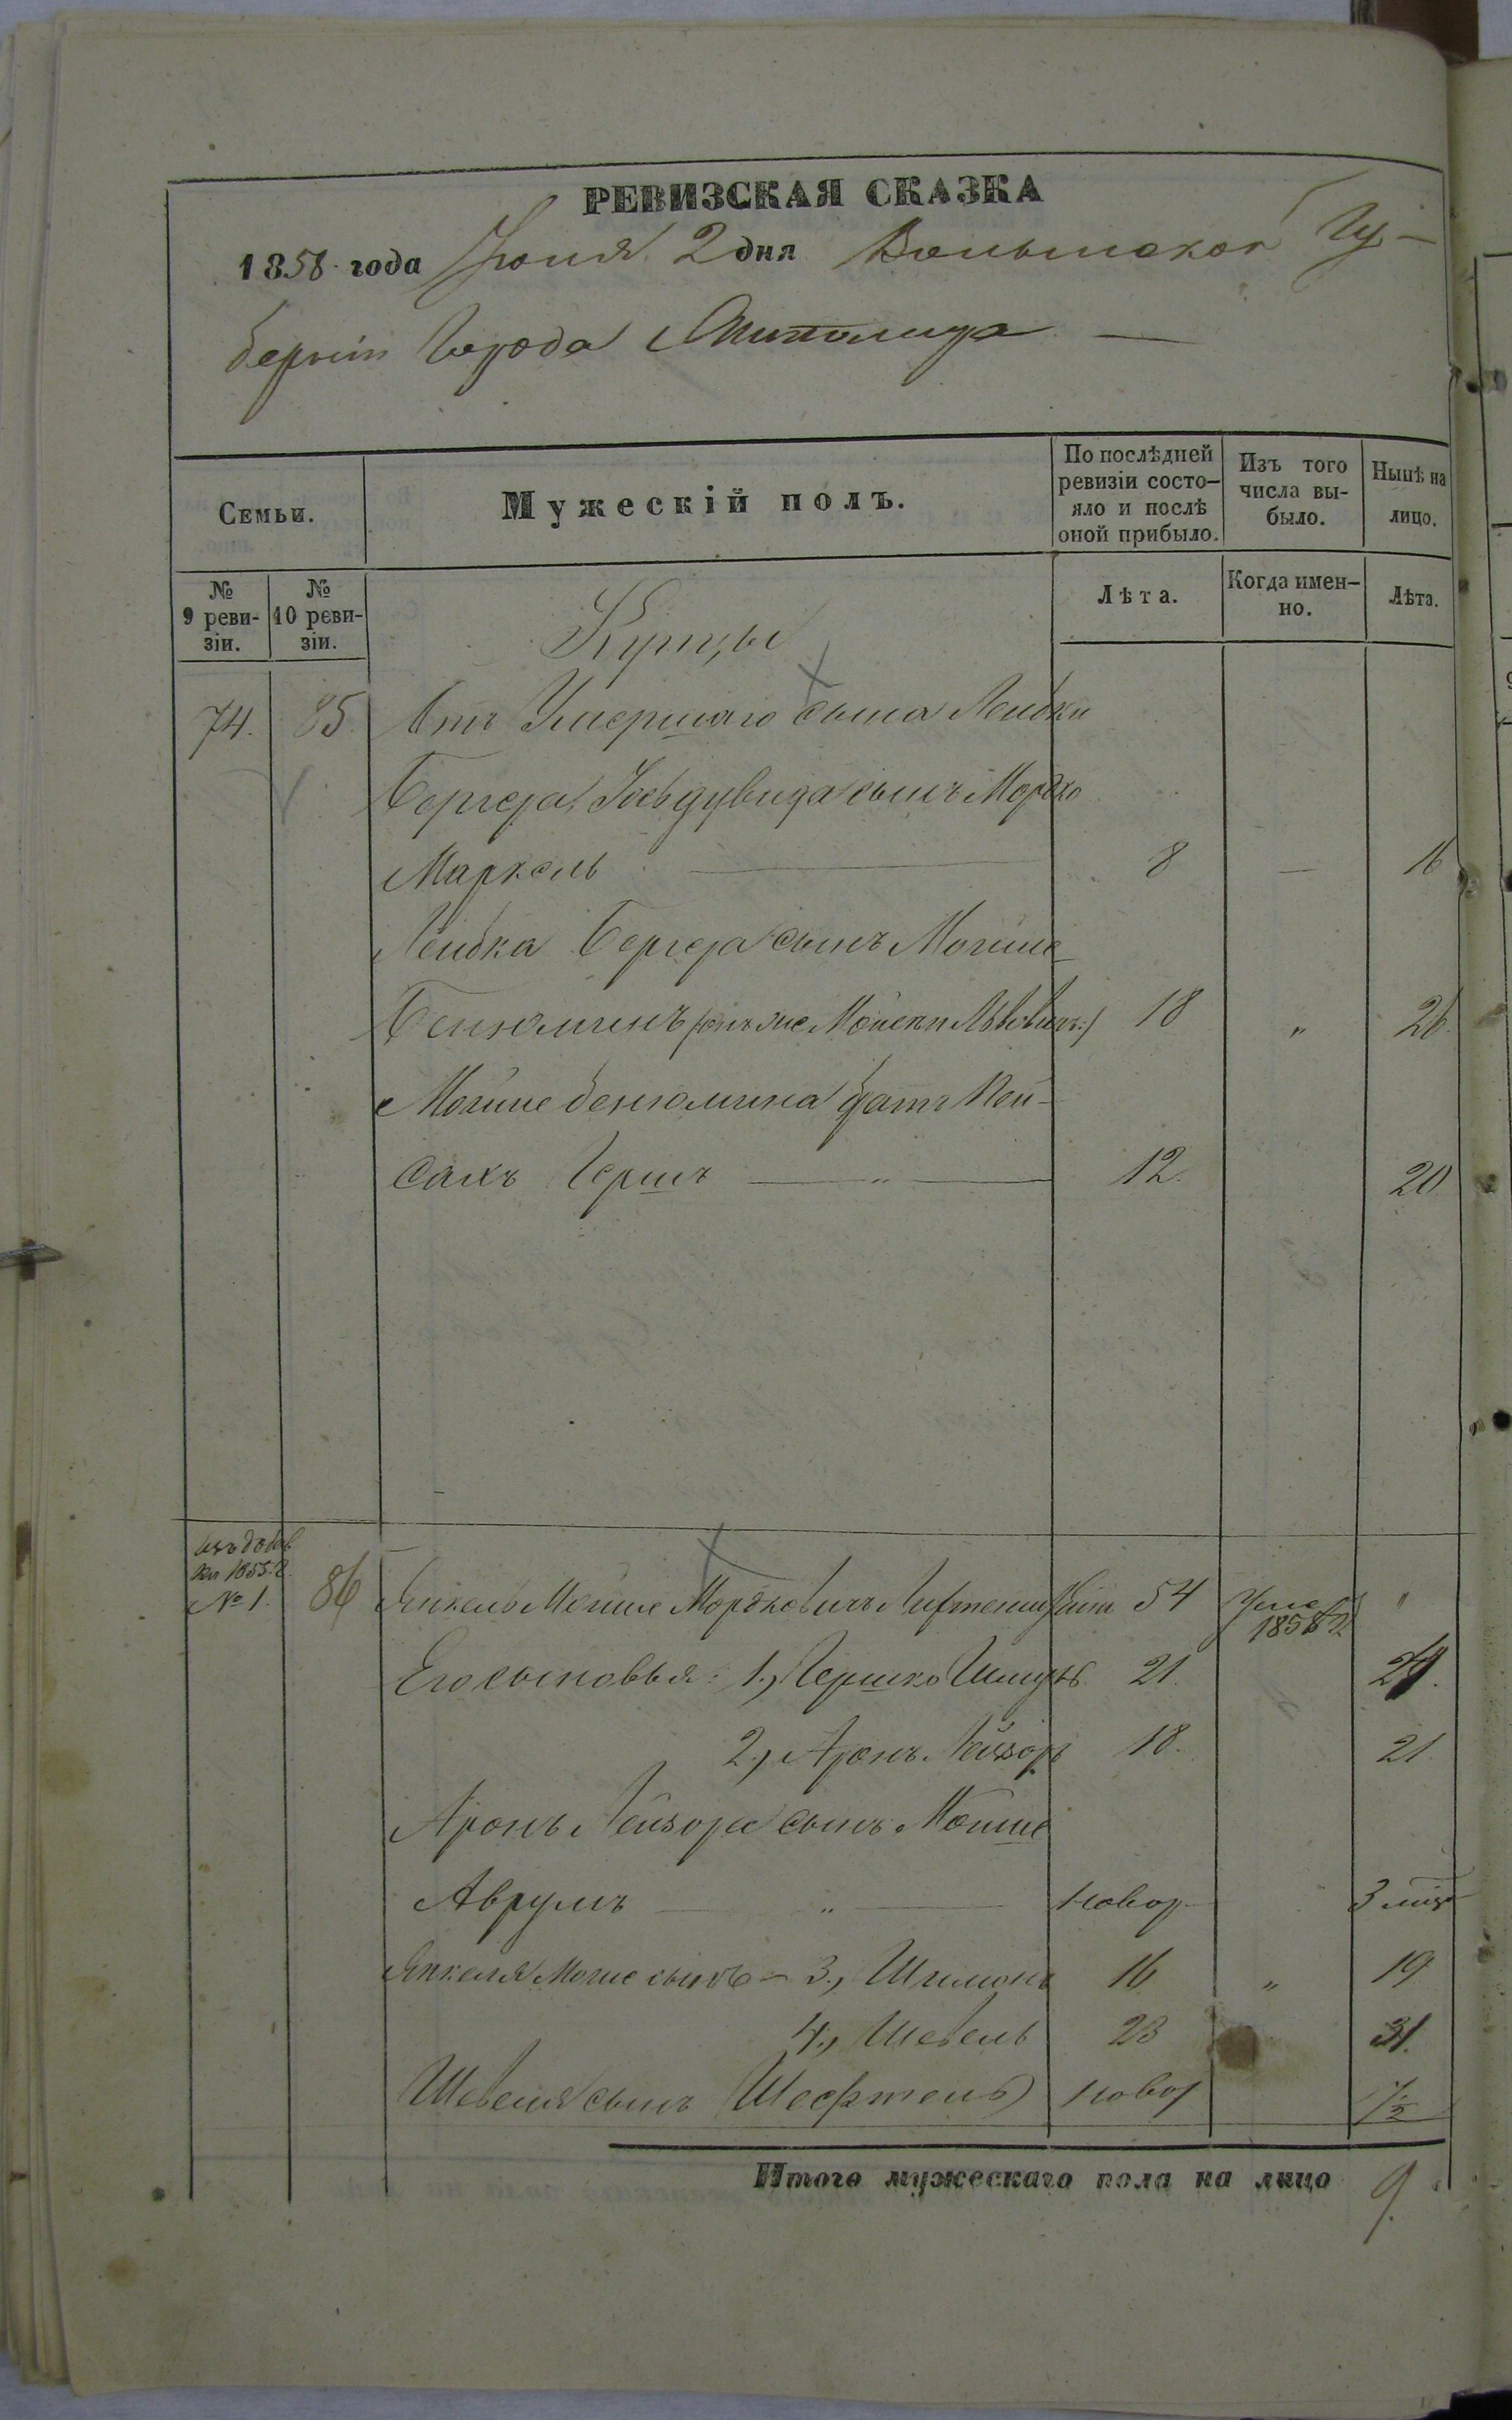 РЕВИЗСКАЯ СКАЗКА
1858 года Іюня 2 дня Волынской Гу-
берніи Города Житомира
Семьи.
Мужескій полъ.
По послѣдней ревизіи состо-яло и послѣ оной прибыло.
Изъ того числа вы-было.
Нынѣ на лицо.
№ 9 реви-зіи.
№ 10 реви-зіи.
Лѣта.
Когда имен-но.
Лѣта.
Купцы
74. 85. Отъ Умершаго сына Лейбки
Бергера, Іосьдувида сынъ Мордко
Маркель 8 — 16
Лейбка Бергера сынъ Мойше
Бенюминъ (онъ же Мойсей Львовичъ) 18 „ 26
Мойше Бенюмина братъ Пей-
сахъ Гершъ — „ — 12. 20
изъ допол.
1855 г.
№ 1. 86 Янкель Мойше Мордковичъ 54 Умеръ 1858 г. „
Его сыновья: 1., Гершко Шмуль 21. 24.
2., Аронъ Лейзоръ 18. 21.
Аронъ Лейзора сынъ Мойше
Аврумъ — „ — новор 3 мѣс
Янкеля Мойше сынъ — 3., Шимонъ 16 „ 19
4., Шевель 23 31.
Шевеля сынъ Шефтель новор 1/2
Итого мужескаго пола на лицо 9.